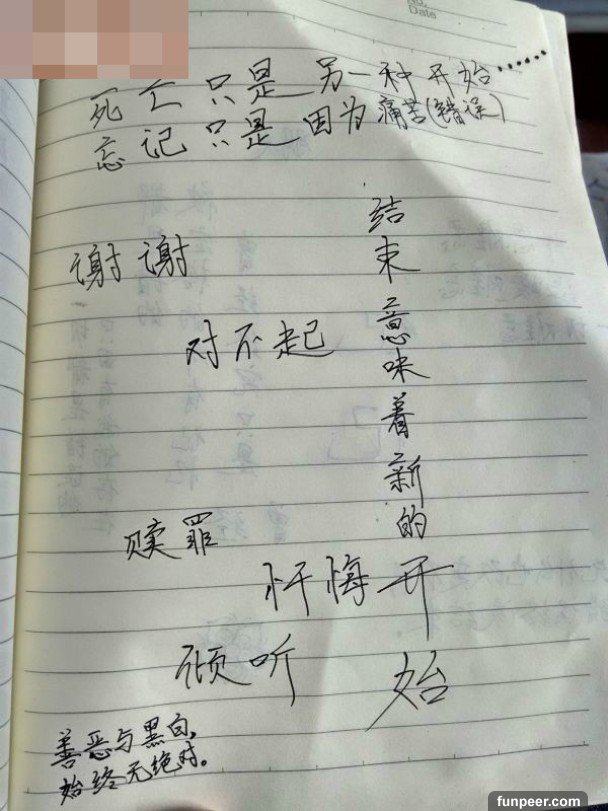 No.
Date
死亡只是另一种开始……
忘记只是因为痛苦(错误)
结束意味着新的开始
谢谢
对不起
赎罪
忏悔
倾听
善恶与黑白,
始终无绝对。
funpeer.com